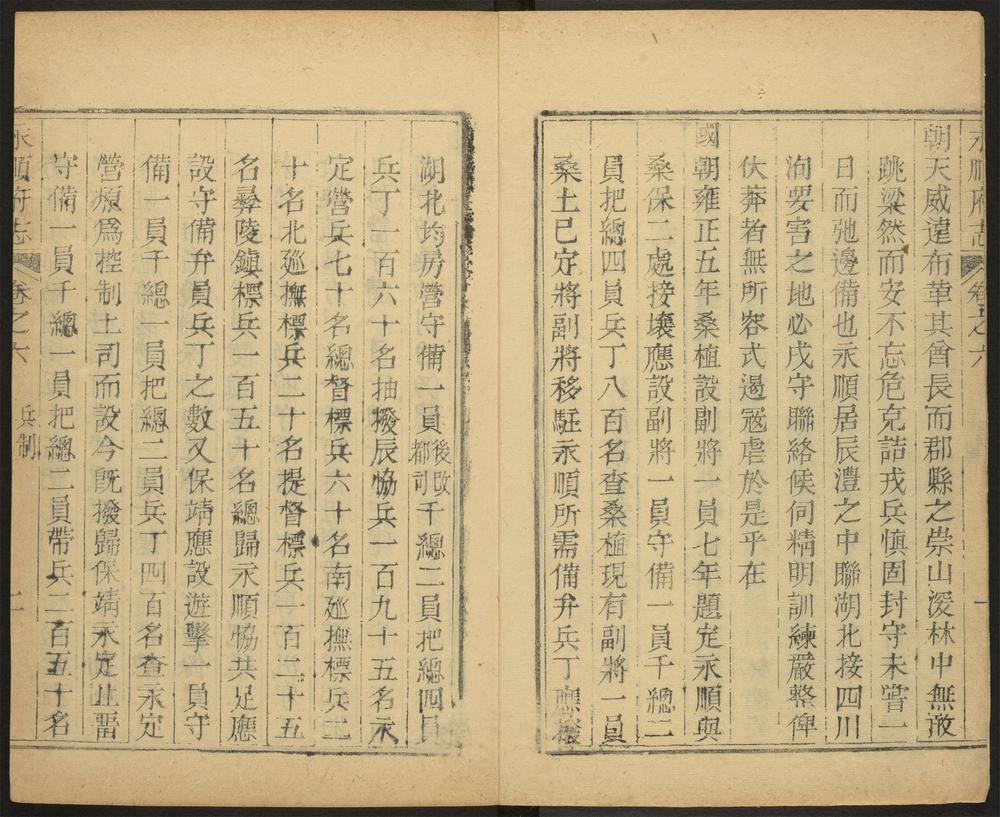 永順府志 卷之六 一
朝天威遠布革其酋長而郡縣之崇山深林中無敢
跳梁然而安不忘危克詰戎兵慎固封守未嘗一
日而弛邊備也永順居辰澧之中聯湖北接四川
洵要害之地必戍守聯絡候伺精明訓練嚴整俾
伏莽者無所容式遏寇虐於是乎在
國朝雍正五年桑植設副將一員七年題定永順與
桑保二處接壤應設副將一員守備一員千總二
員把總四員兵丁八百名查桑植現有副將一員
桑土已定將副將移駐永順所需備弁兵丁應撥
湖北均房營守備一員後改都司千總二員把總四員
兵丁一百六十名抽撥辰協兵一百九十五名永
定營兵七十名總督標兵六十名南廵撫標兵二
十名北廵撫標兵二十名提督標兵一百二十五
名彝陵鎮標兵一百五十名總歸永順協共足應
設守備弁員兵丁之數又保靖應設遊擊一員守
備一員千總一員把總二員兵丁四百名查永定
營原爲控制土司而設今既撥歸保靖永定止留
守備一員千總一員把總二員帶兵二百五十名
永順府志 卷之六 兵制 二